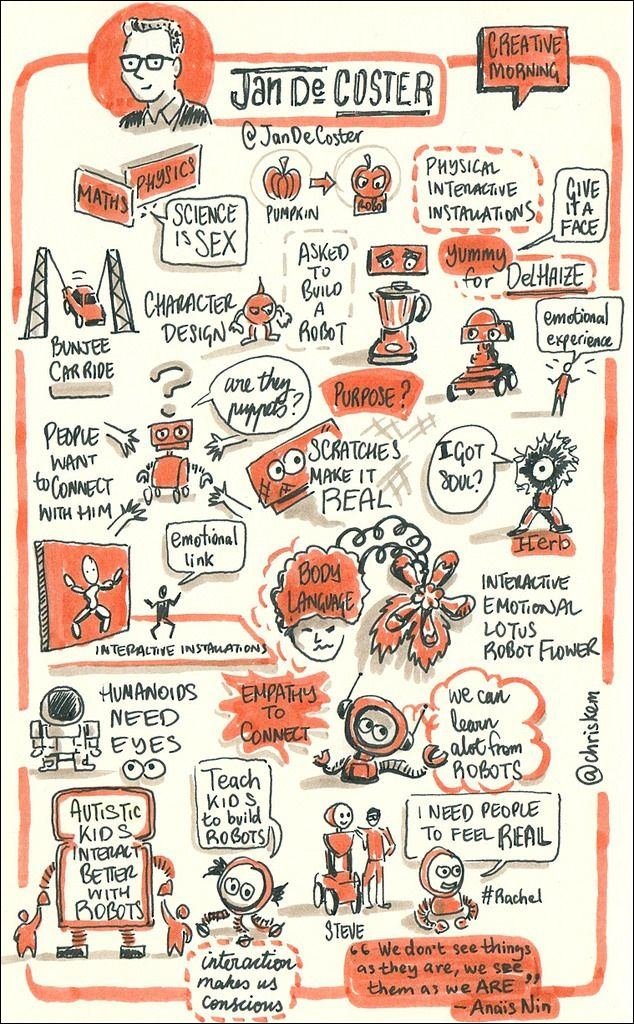 Jan De COSTER
CREATIVE
MORNING
@JanDeCoster
MATHS
PHYSICS
SCIENCE
IS SEX
PUMPKIN
ROBOT
PHYSICAL
INTERACTIVE
INSTALLATIONS
GIVE
IT A
FACE
BUNJEE
CAR RIDE
CHARACTER
DESIGN
ASKED
TO
BUILD
A
ROBOT
yummy
for DELHAIZE
emotional
experience
?
are they
puppets?
PURPOSE?
PEOPLE
WANT
to CONNECT
WITH HIM
SCRATCHES
MAKE IT
REAL
I GOT
SOUL?
Herb
emotional
link
INTERACTIVE INSTALLATIONS
BODY
LANGUAGE
INTERACTIVE
EMOTIONAL
LOTUS
ROBOT FLOWER
HUMANOIDS
NEED
EYES
EMPATHY
TO
CONNECT
we can
learn
alot from
ROBOTS
@chriskem
AUTISTIC
KIDS
INTERACT
BETTER
WITH
ROBOTS
Teach
KIDS
to build
ROBOTS
STEVE
I NEED PEOPLE
TO FEEL REAL
#Rachel
interaction
makes us
conscious
“We don't see things
as they are, we see
them as we ARE”
- Anaïs Nin